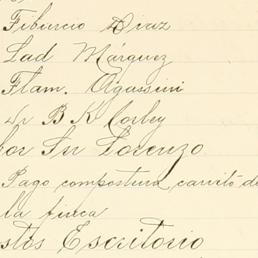 Tiburcio Diaz
Lad Márquez
Flam. Agussini
Dr B K Corley
por Sn Lorenzo
Pago compostura carrito de
la finca
stos Escritorio